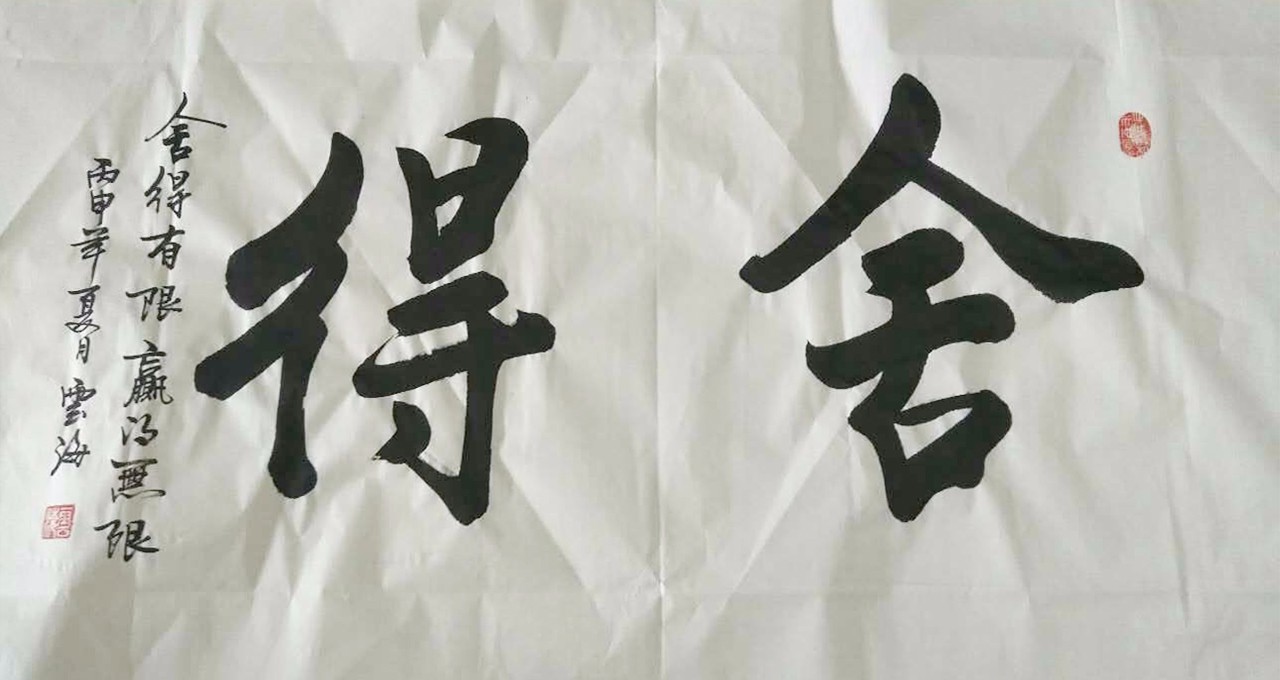 舍得
舍得有限赢得無限
丙申年夏月雲海